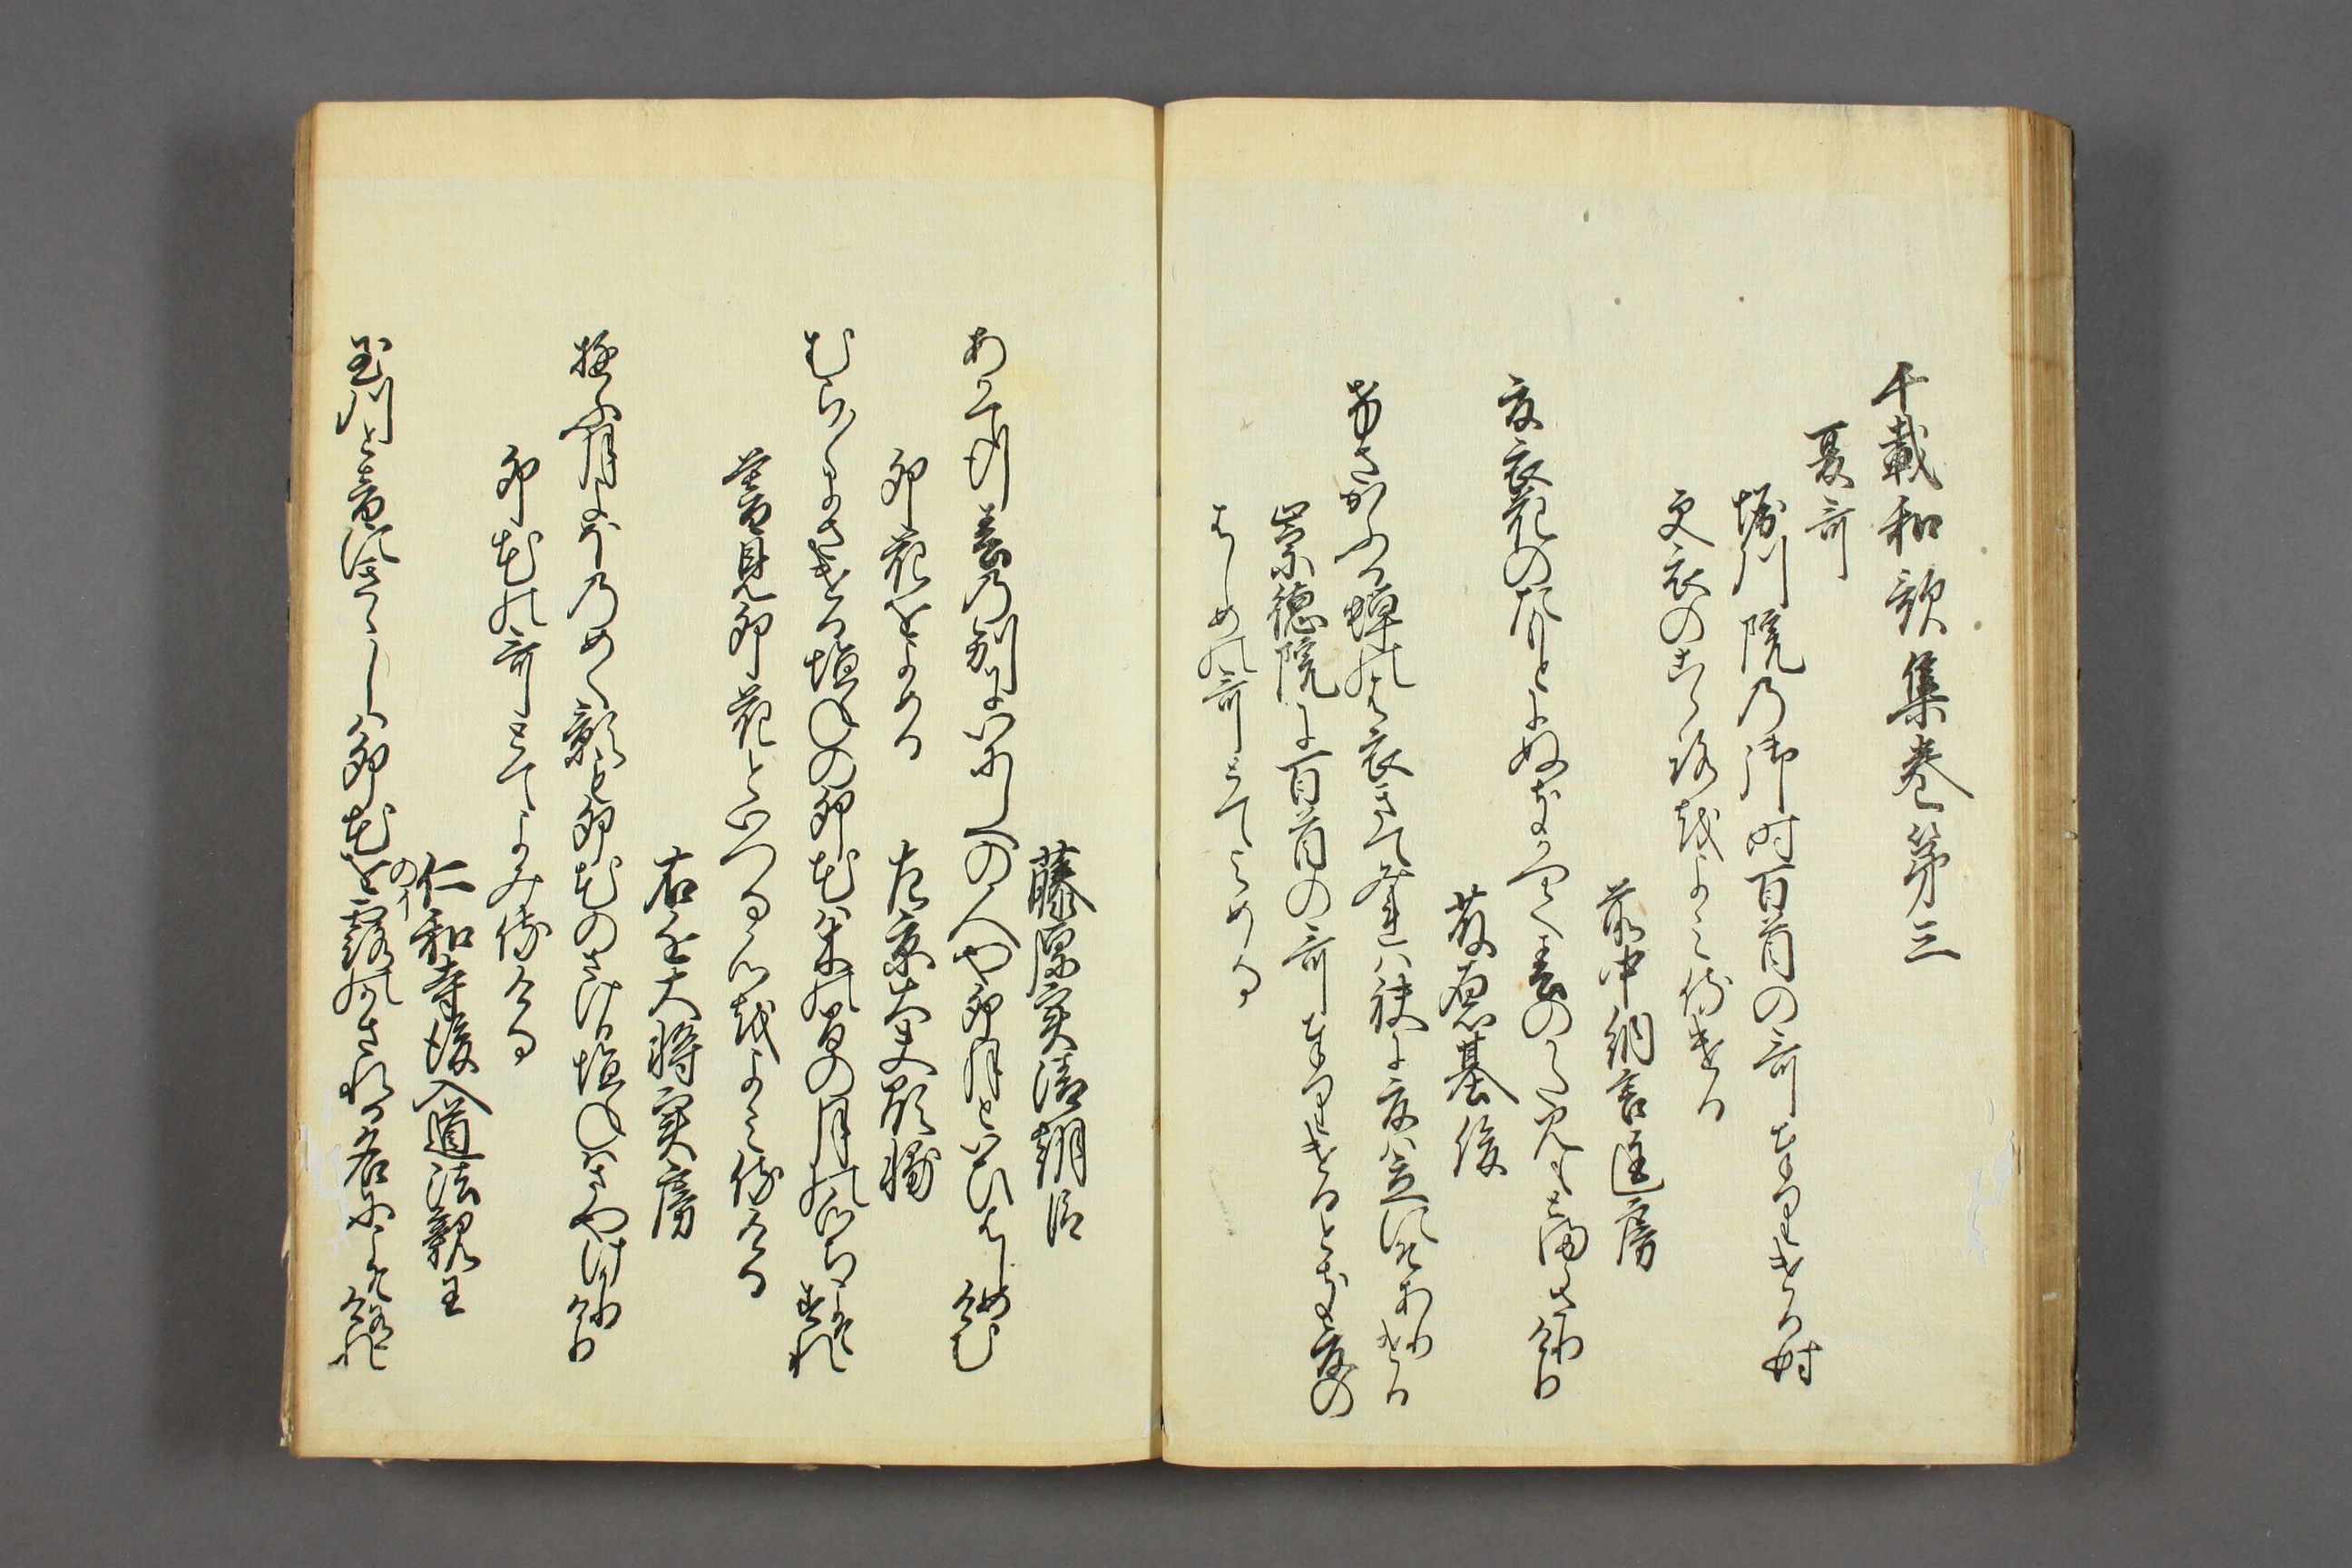 千載和歌集巻第三
夏哥
堀川院乃御時百首の哥たてまつりける時
更衣の心をよみ侍ける
前中納言匡房
夏衣花のたもとにぬきかへて春のかたみもとまらさりけり
藤原基俊
けさかふる蝉のは衣きてみれは袂に夏は立にそありける
崇徳院に百首の哥たてまつりけるとき夏の
はしめの哥とてよめる
藤原実清朝臣
あかて行春乃別にいにしへの人や卯月といひはしめけむ
卯花をよめる
左京大夫顕輔
むら〳〵にさける垣ねの卯花は木のまの月の心ちこそすれ
暮見卯花といへる心をよみ侍ける
右近大将実房
夕月よほのめく影も卯花のさける垣ねはさやけかりけり
卯花の哥とてよみ侍ける
仁和寺後入道法親王
のイ
玉川と音にきゝしは卯花を露のかされる名にこそ有けれ